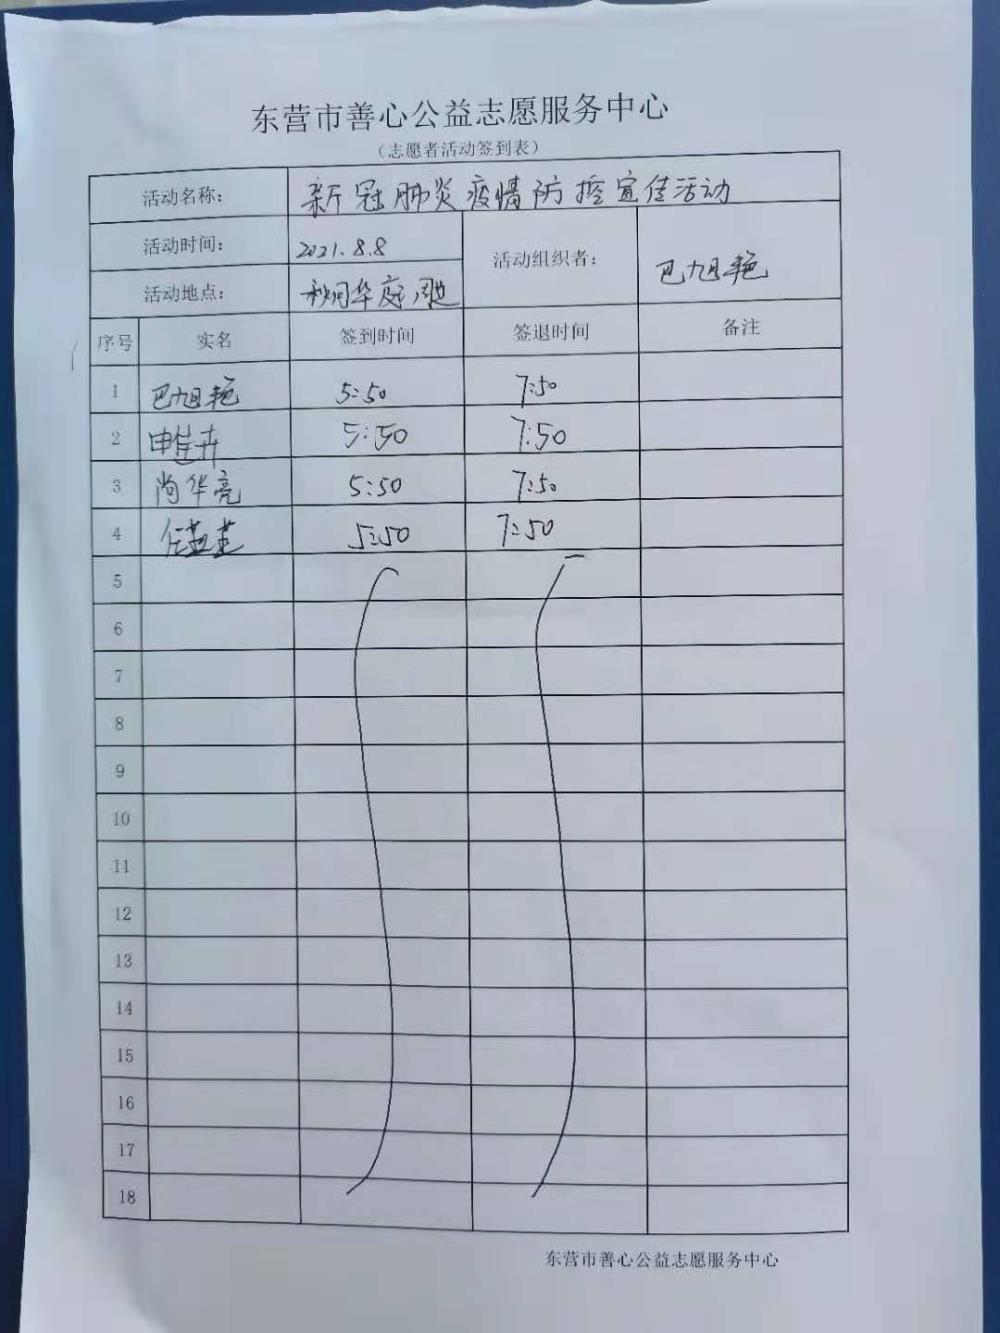 东营市善心公益志愿服务中心
（志愿者活动签到表）
活动名称： 新冠肺炎疫情防控宣传活动
活动时间： 2021.8.8 活动组织者： 巴旭艳
活动地点： 华庭周边
序号 实名 签到时间 签退时间 备注
1 巴旭艳 5:50 7:50
2 申佳卉 5:50 7:50
3 尚华亮 5:50 7:50
4 任 5:50 7:50
5
6
7
8
9
10
11
12
13
14
15
16
17
18
东营市善心公益志愿服务中心